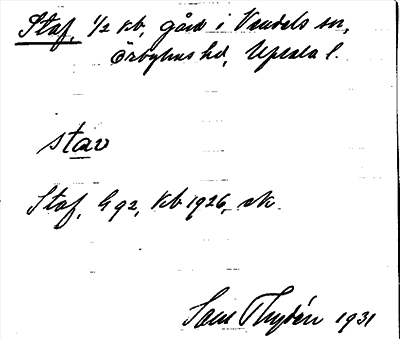 Staf, 1/2 kb, gård i Vendels sn,
Örbyhus hd, Upsala l.
stav
Staf, G 92, kb 1926, ek.
Thydén 1931